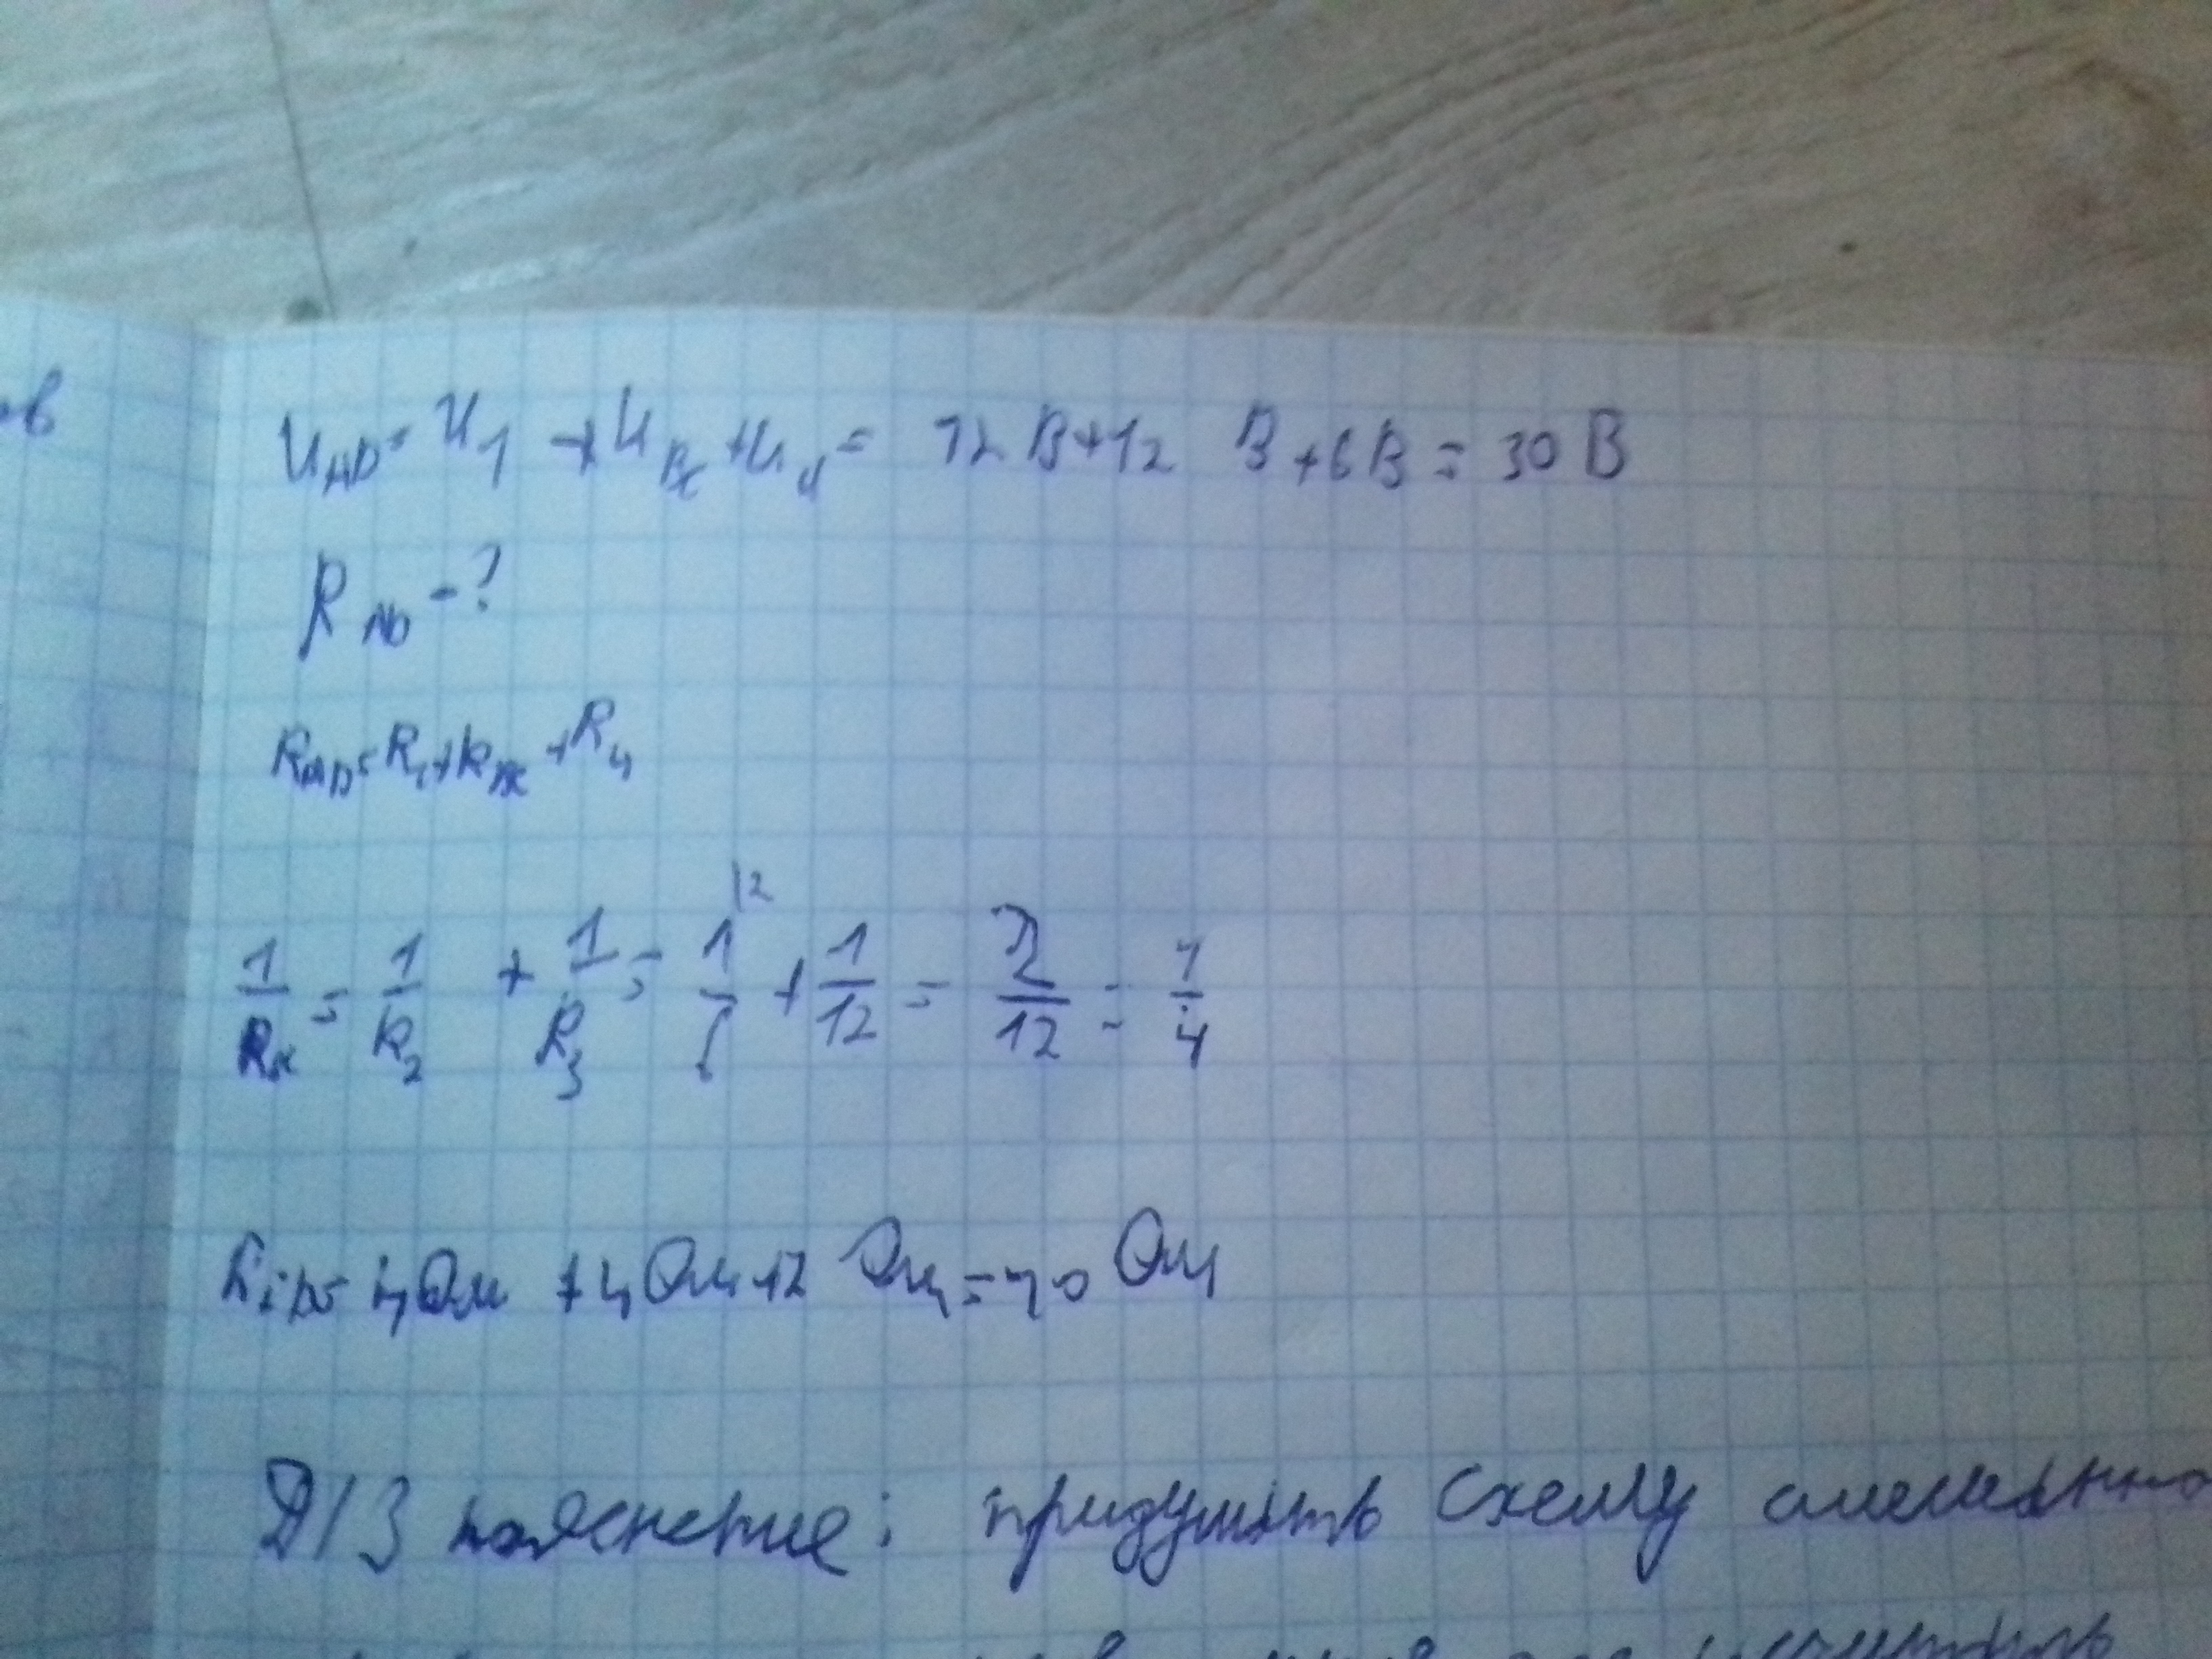 ов
U_AD = U_1 + U_BC + U_4 = 12 В + 12 В + 6 В = 30 В
R_AD - ?
R_AD = R_1 + R_BC + R_4
1/R_x = 1/R_2 + 1/R_3 = 1/6 |2 + 1/12 = 3/12 = 1/4
R_AD = 4 Ом + 4 Ом + 2 Ом = 10 Ом
Д/З пояснение: придумать схему смешанно